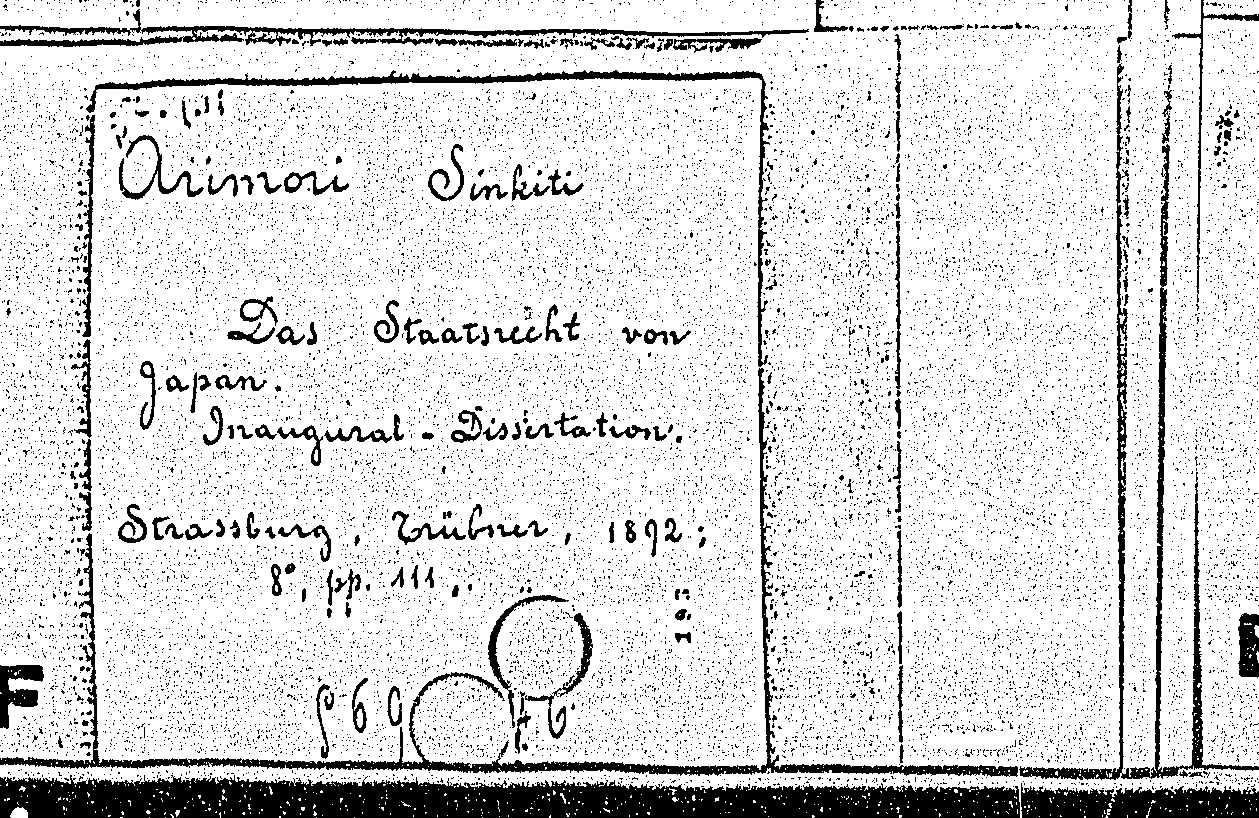 Arimori Sinkiti
Das Staatsrecht von
Japan.
Inaugural-Dissertation.
Strassburg, Trübner, 1892;
8°, pp. 111..